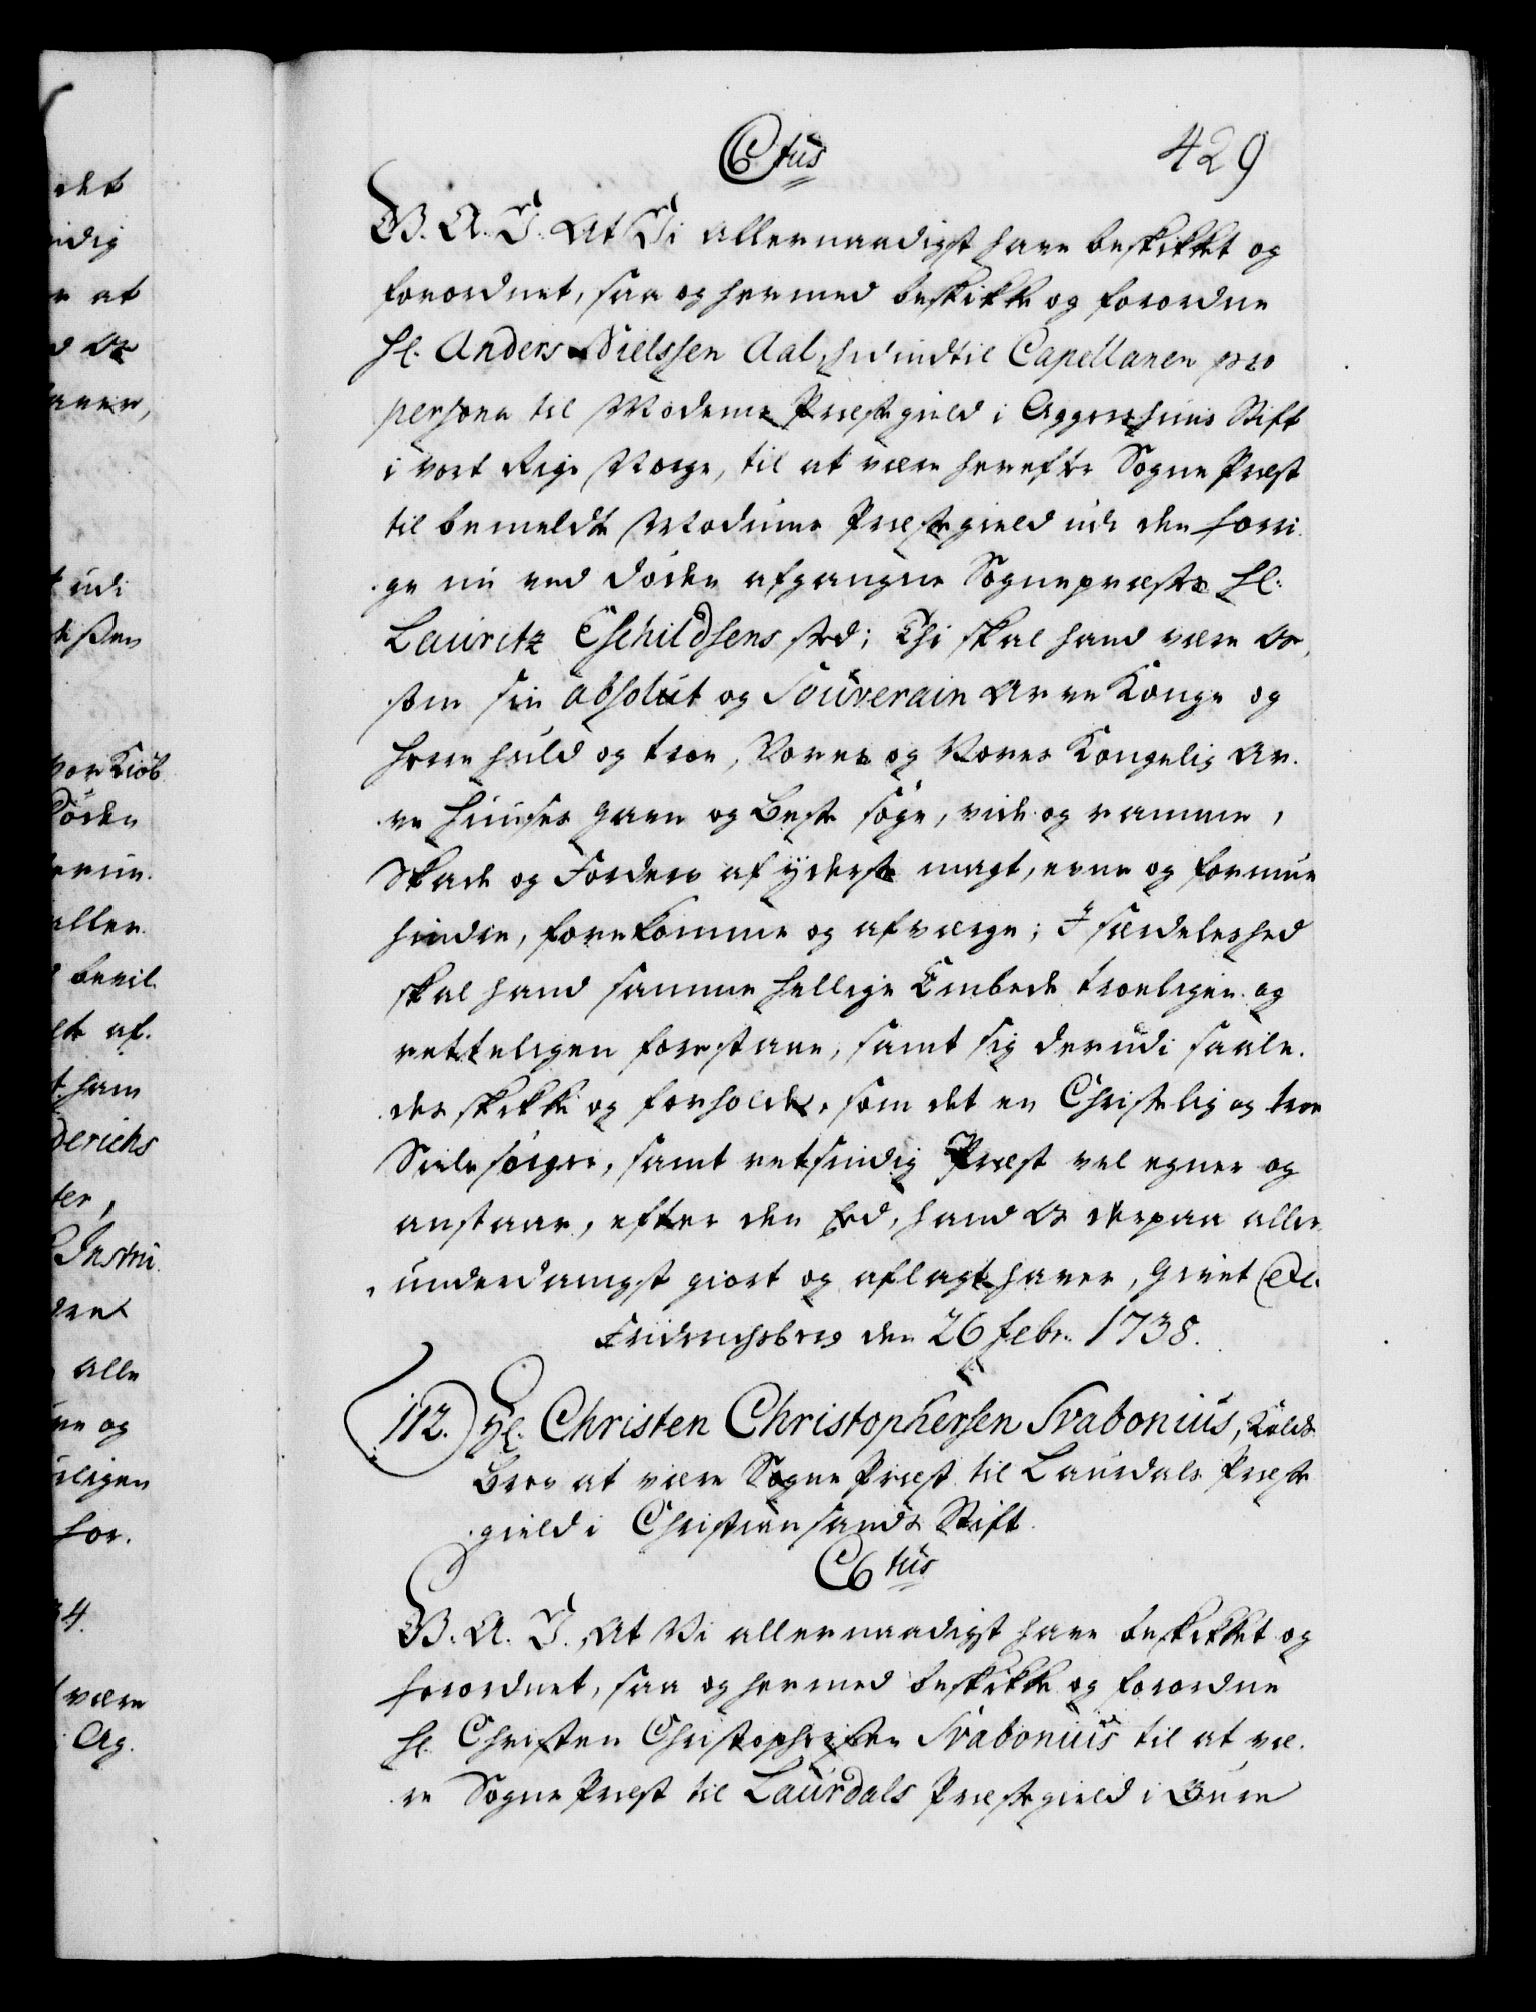 429
C6tus
G. A. V. At Vi allernaadigst have beskikket og
forordnet, saa og hermed beskikke og forordne
Hr. Anders Nielssen Aal, hidindtil Capellanen pro
persona til Modums Præstegield i Aggershuus Stift
i vort Rige Norge, til at være herefter Sogne Præst
til bemeldte Modums Præstegield udi den forri¬
ge nu ved døden afgangne Sognepræstes Hr.
Lauritz Eschildsens sted; Thi skal hand være Os,
som sin absolut og Souverain Arve Konge og
Herre huld og troe, Vores og Vores Kongelig Ar¬
ve Huuses gavn og Beste søge, vide og ramme,
Skade og Forderv af yderste magt, evne og formue
hindre, forekomme og afværge; I særdeleshed
skal hand samme hellige Embede troeligen og
retteligen forestaae, samt sig derudi saale¬
des skikke og forholde, som det en Christelig og troe
Siælesørger, samt retsindig Præst vel egner og
anstaar, efter den Eed, hand Os derpaa aller¬
underdanigst giort og aflagt haver, Givet etc.
Friderichsberg den 26 Febr. 1738.
112. Hr. Christen Christophersen Svabonius, Kalds
Brev at være Sogne Præst til Laurdals Præste
gield i Christiansands Stift.
C6tus
G. A. V. At Vi allernaadigst have beskikket og
forordnet, saa og hermed beskikke og forordne
Hr. Christen Christophersen Svabonius til at væ¬
re Sogne Præst til Laurdals Præstegield i